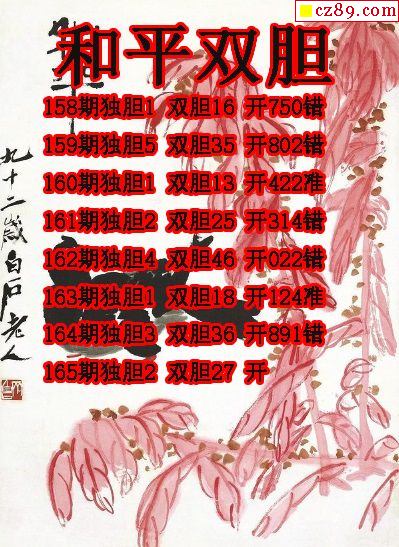 cz89.com
和平双胆
158期独胆1 双胆16 开750错
159期独胆5 双胆35 开802错
160期独胆1 双胆13 开422准
161期独胆2 双胆25 开314错
162期独胆4 双胆46 开022错
163期独胆1 双胆18 开124准
164期独胆3 双胆36 开891错
165期独胆2 双胆27 开
九十二岁白石老人